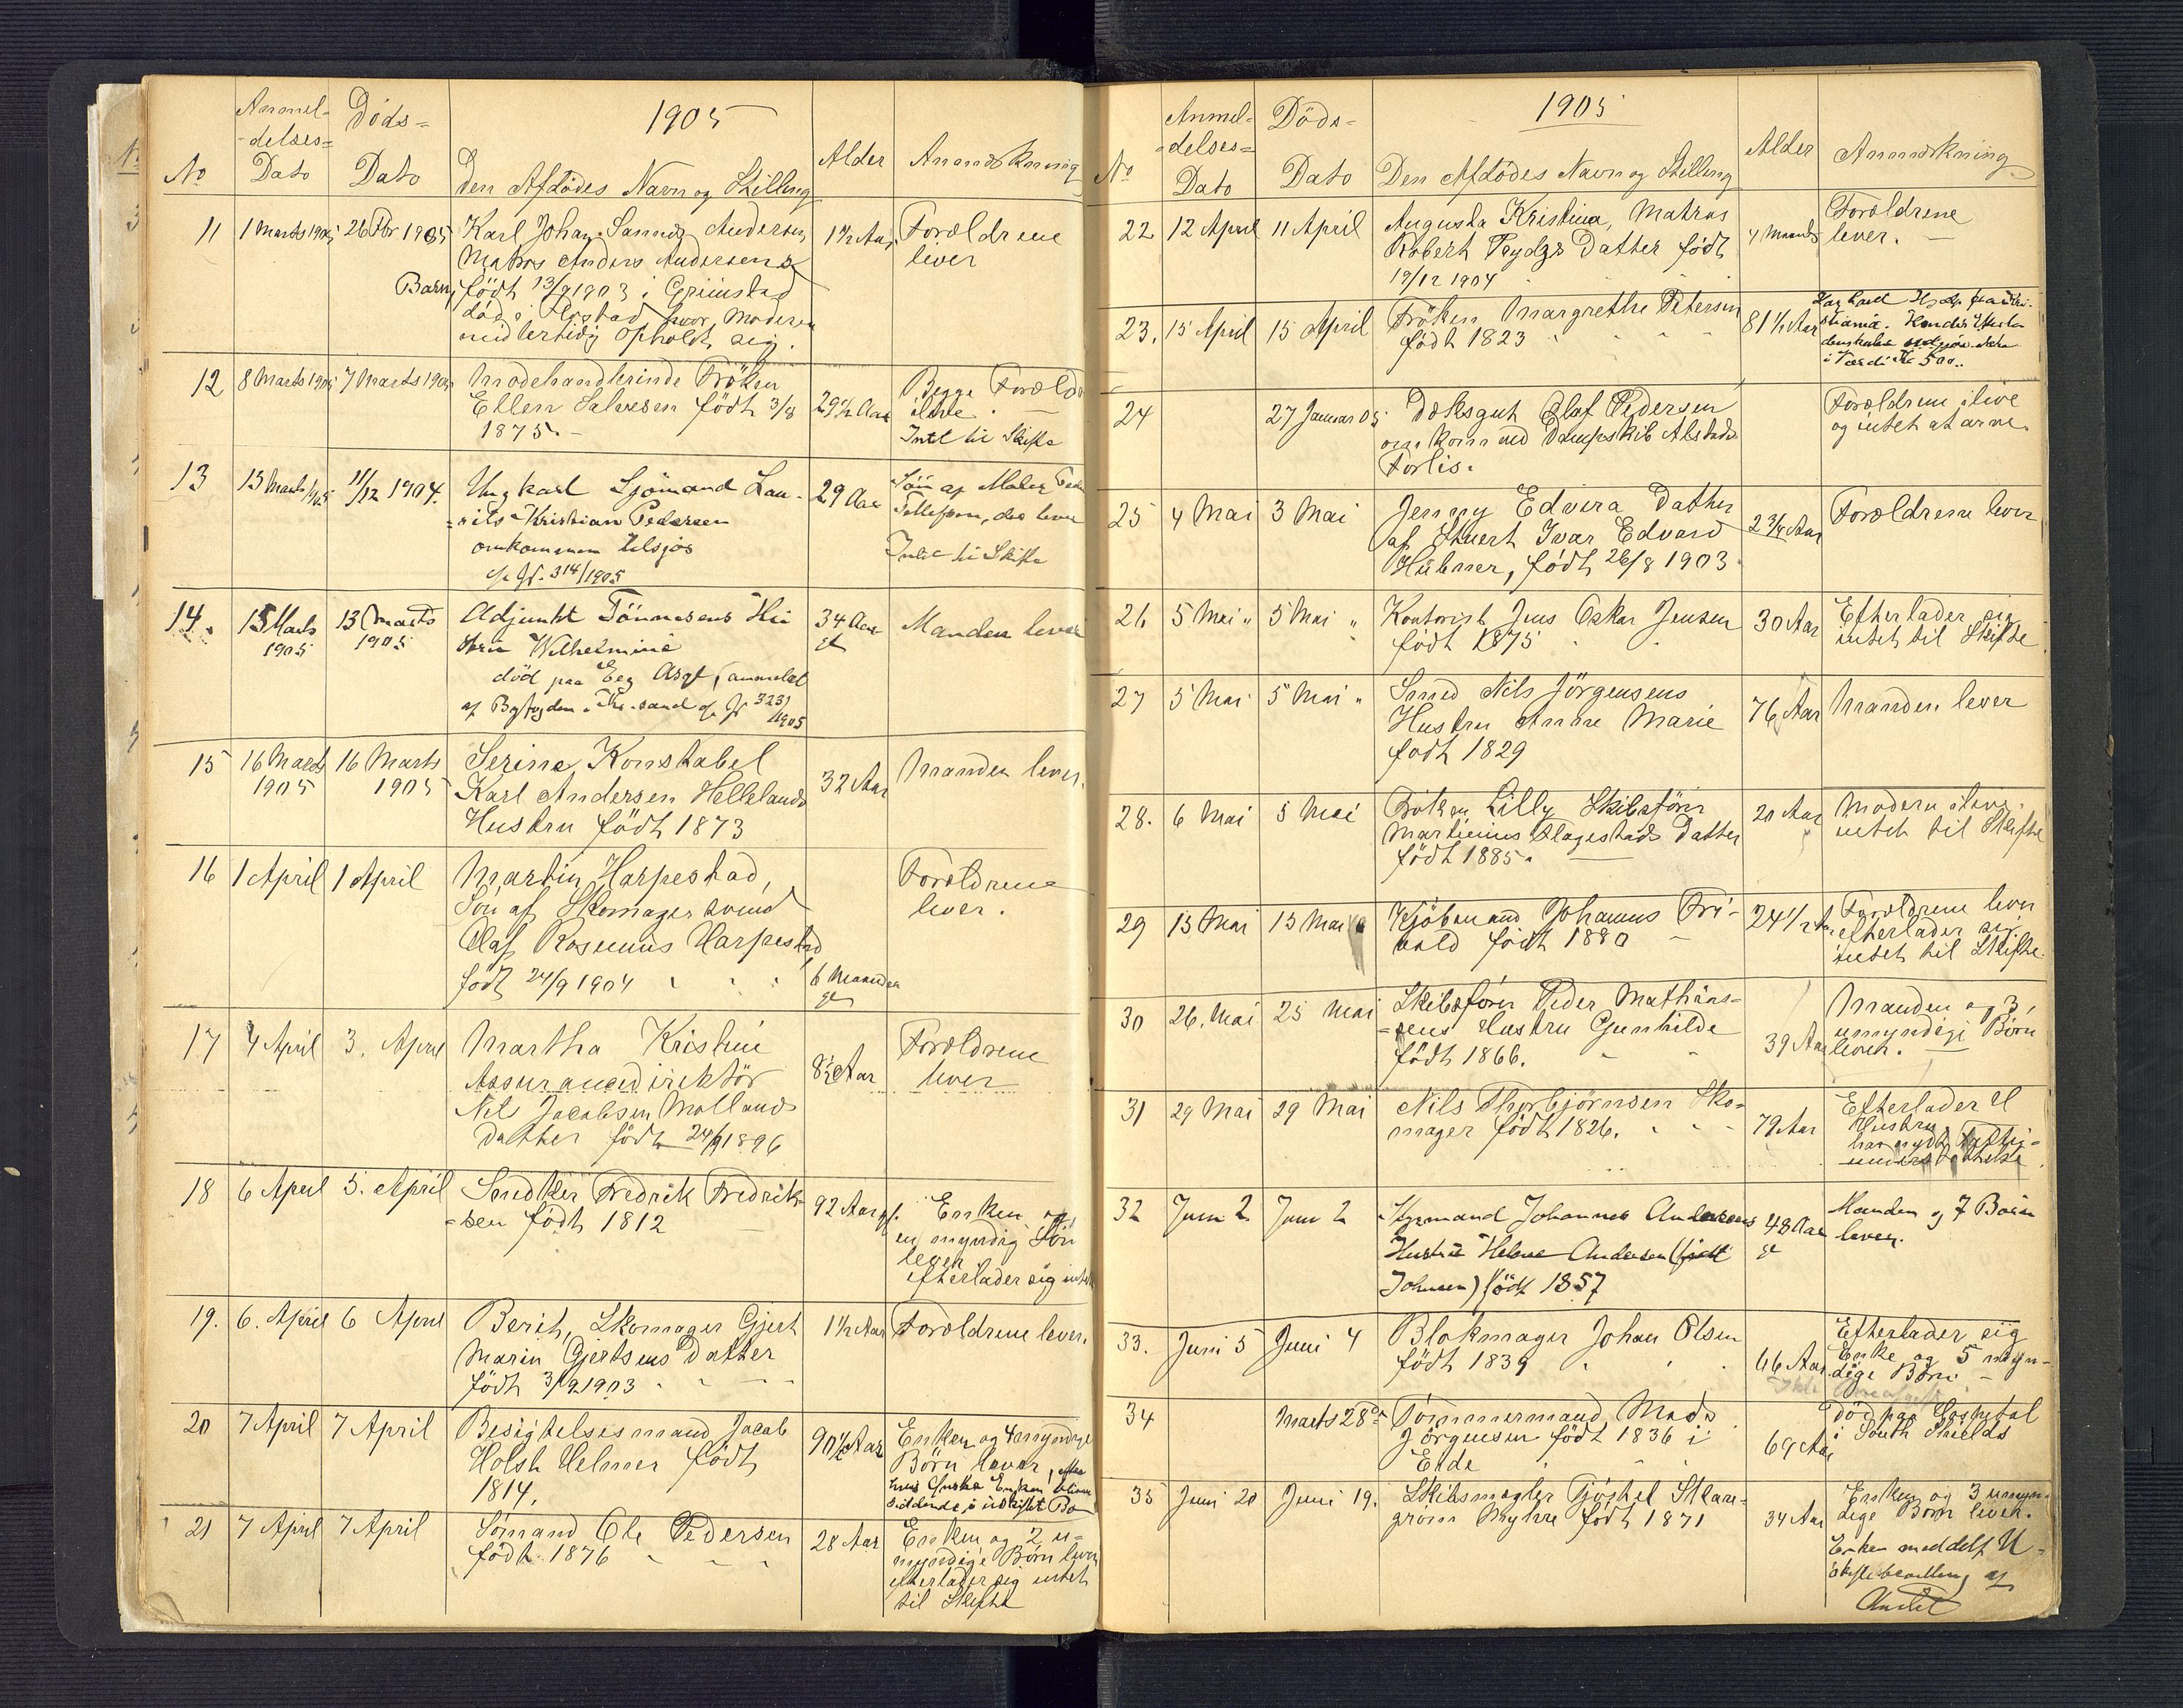 Anmel-
-delses=
Dato
Døds=
Dato
1905
No
Den Afdødes Navn og Stilling
Alder
Anmærkning
11 1 Marts 1905 26 Febr 1905 Karl Johan Andersen 1½ Aar Forældrene
Matros Anders Andersens lever
Barn, født 13/9 1903 i Grimstad
død i hvor Moderen
midlertidig opholdt sig.
12 8 Marts 1905 7 Marts 1905 Modehandlerinde Frøken 29½ Aar Begge Forældre
Ellen Salvesen født 3/8 ilive. —
1875. — Intet til Skifte
13 15 Marts 1905 11/12 1904. Ungkarl Sjømand Lau- 29 Aar Søn af Maler
=rits Kristian Pedersen Tellefsen, der lever
omkommen tilsjøs Intet til Skifte
cfr Jr. 314/1905
14. 15 Marts 1905 13 Marts 1905 Adjunkt Tønnesens Hu- 34 Aar gl Manden lever
stru Wilhelmine
død paa Eeg Asyl, anmeldt
af Byfogden i Kr.sand cfr Jr 323/1905
15 16 Marts 1905 16 Marts 1905 Serine Konstabel 32 Aar Manden lever.
Karl Andersen Hellelands
Hustru født 1873
16 1 April 1 April Martin Harpestad, Forældrene
Søn af Skomagersvend lever.
Olaf Rasmus Harpestad
født 24/9 1904 6 Maaneder gl
17 4 April 3. April Martha Kristine 8½ Aar Forældrene
Assurancedirektør lever
Nils Jacobsen Mollands
Datter født 24/9 1896
18 6 April 5. April Snedker Fredrik Fredrik- 92 Aar gl. Enken og
=sen født 1812 — en myndig Søn
lever
efterlader sig intet
19. 6. April 6 April Berit, Skomager Gjert 1½ Aar Forældrene lever.
Marin Gjertsens Datter
født 3/9 1903
20 7 April 7 April Besigtelsesmand Jacob 90½ Aar Enken og 4 myndige
Holst Helmer født Børn lever,
1814. Enken bliver
siddende i uskiftet Bo
21 7 April 7 April Sømand Ole Pedersen 28 Aar Enken og 2 u-
født 1876 myndige Børn lever
efterlader sig intet
til Skifte
Anmel-
-delses=
Dato
Døds-
Dato
1905
No
Den Afdødes Navn og Stilling
Alder
Anmærkning
22 12 April 11 April Augusta Kristina, Matros 4 Maaneder Forældrene
Robert Datter født lever. —
19/12 1904
23. 15 April 15 April Frøken Margrethe Petersen 81½ Aar
født 1823
i Værdi Kr 500..
24 27 Januar 05 Dæksgut Olaf Pedersen Forældrene ilive
omkom ved Dampskib Alstads og intet at arve.
Forlis.
25 4 Mai 3 Mai Jenny Edvira Datter 2 3/4 Aar Forældrene lever
af Stuert Ivar Edvard
Hübner, født 26/8 1903
26 5 Mai " 5 Mai " Kontorist Jens Oskar Jensen 30 Aar Efterlader sig
født 1875 intet til Skifte
27 5 Mai 5 Mai " Smed Nils Jørgensens 76 Aar Manden lever
Hustru Anne Marie
født 1829
28. 6 Mai 5 Mai Frøken Lilly Skibsfører 20 Aar Modern ilive.
Martinius Flagestads Datter intet til Skifte
født 1885. —
29 15 Mai 15 Mai Kjøbmand Johannes Tri- 24 1/2 A. Forældrene lever
vold født 1880 — efterlader sig
intet til Skifte.
30 26. Mai 25 Mai Skibsfører Peder Mathias- 39 Aar Manden og 3
=sens Hustru Gunhilde umyndige Børn
født 1866. lever. —
31 29 Mai 29 Mai Nils Thorbjørnsen Sko- 79 Aar Efterlader sl
mager født 1826. Hustru,
har nydt Fattig-
understøttelse
32 Juni 2 Juni 2 Styrmand Johannes Andersens 48 Aar gl Manden og 7 Børn
Hustru Helene Andersen (født lever.
Johnsen) født 1857
33. Juni 5 Juni 4 Blokmager Johan Olsen 66 Aar Efterlader sig
født 1839 Enke og 5 myn-
dige Børn —
34 Marts 28de Tømmermand Mads 69 Aar død paa Hospital
Jørgensen født 1836 i i South Shields
Eide
35 Juni 20 Juni 19. Skibsmægler Tjøstel Stian- 34 Aar Enken og 3 umyn-
grom Myhre født 1871 dige Børn lever.
Enken meddelt U-
skiftebevilling af
Amtet